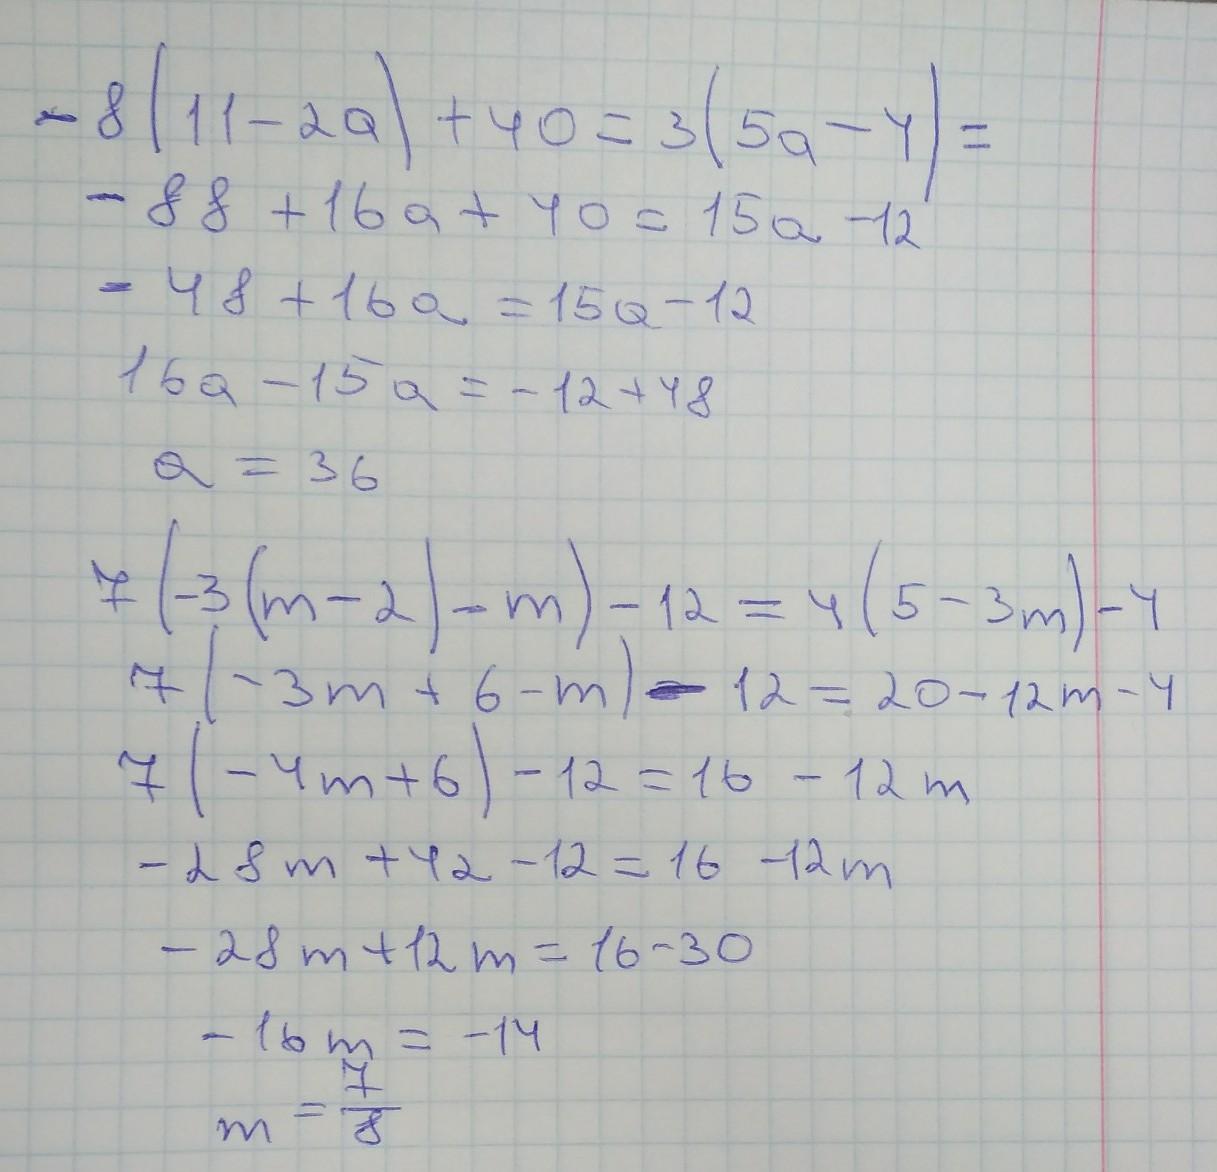 -8(11-2a)+40=3(5a-4)=
-88+16a+40=15a-12
-48+16a=15a-12
16a-15a=-12+48
a=36
7(-3(m-2)-m)-12=4(5-3m)-4
7(-3m+6-m)-12=20-12m-4
7(-4m+6)-12=16-12m
-28m+42-12=16-12m
-28m+12m=16-30
-16m=-14
m=7/8